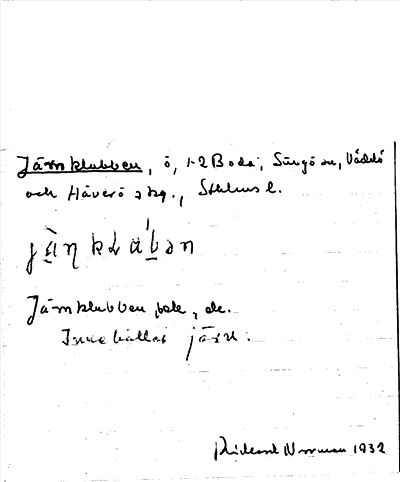 Järnklubben, ö, 1-2 Boda, Singö sn, Väddö
och Häverö skg., Sthlms l.
Järnklubben, de.
Innehåller järn.
Rickard Norrman 1932